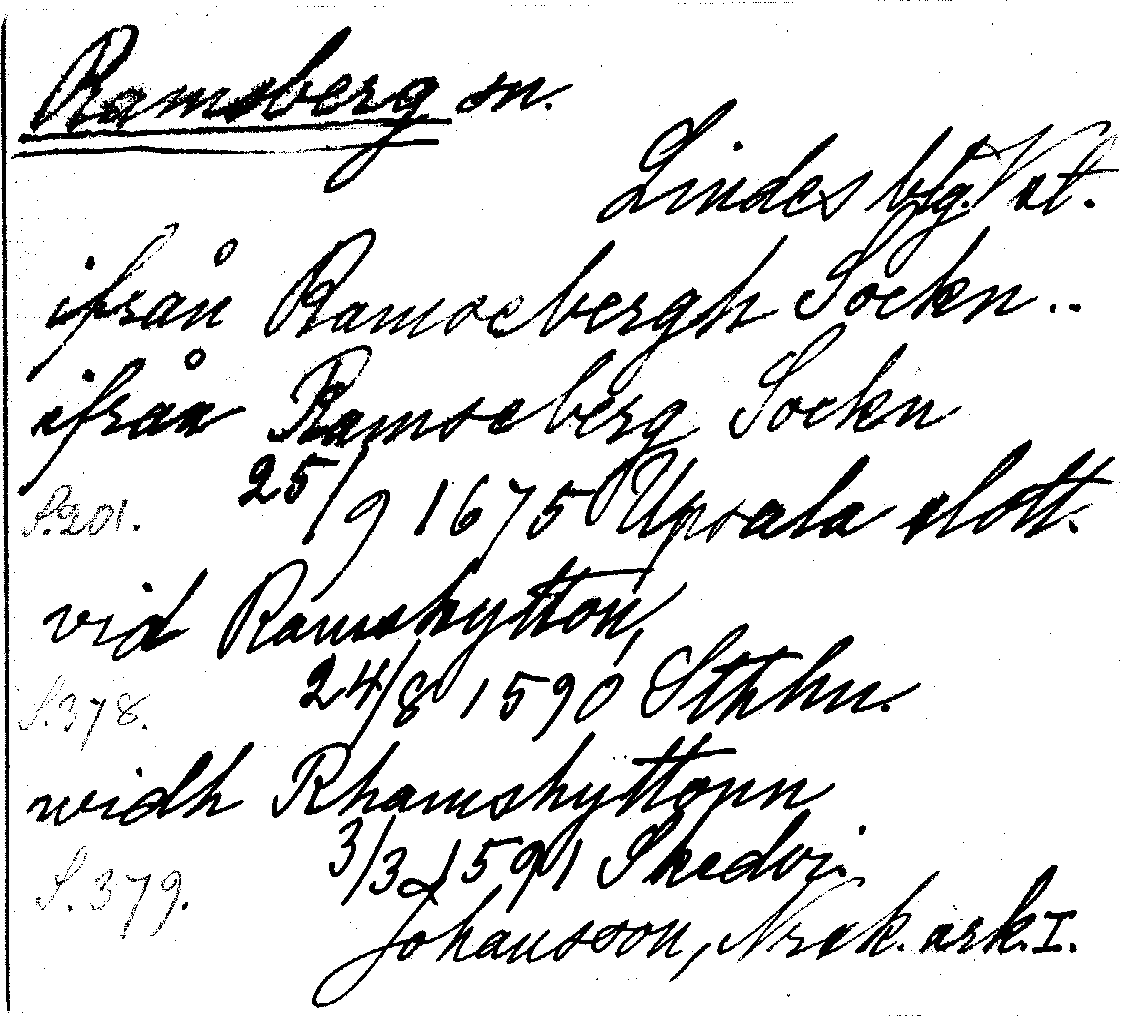 Ramsberg sn.
Lindesbg. Vt.
ifrån Ramsebergh Sockn..
ifrån Ramseberg Sockn
S. 201. 25/9 1675 Upsala slott.
vid Ramshytton,
S. 378. 24/8 1590 Sthlm.
widh Rhamshyttonn
3/3 1591 Skedvi.
S. 379.
Johansson, Nrek. ark. I.